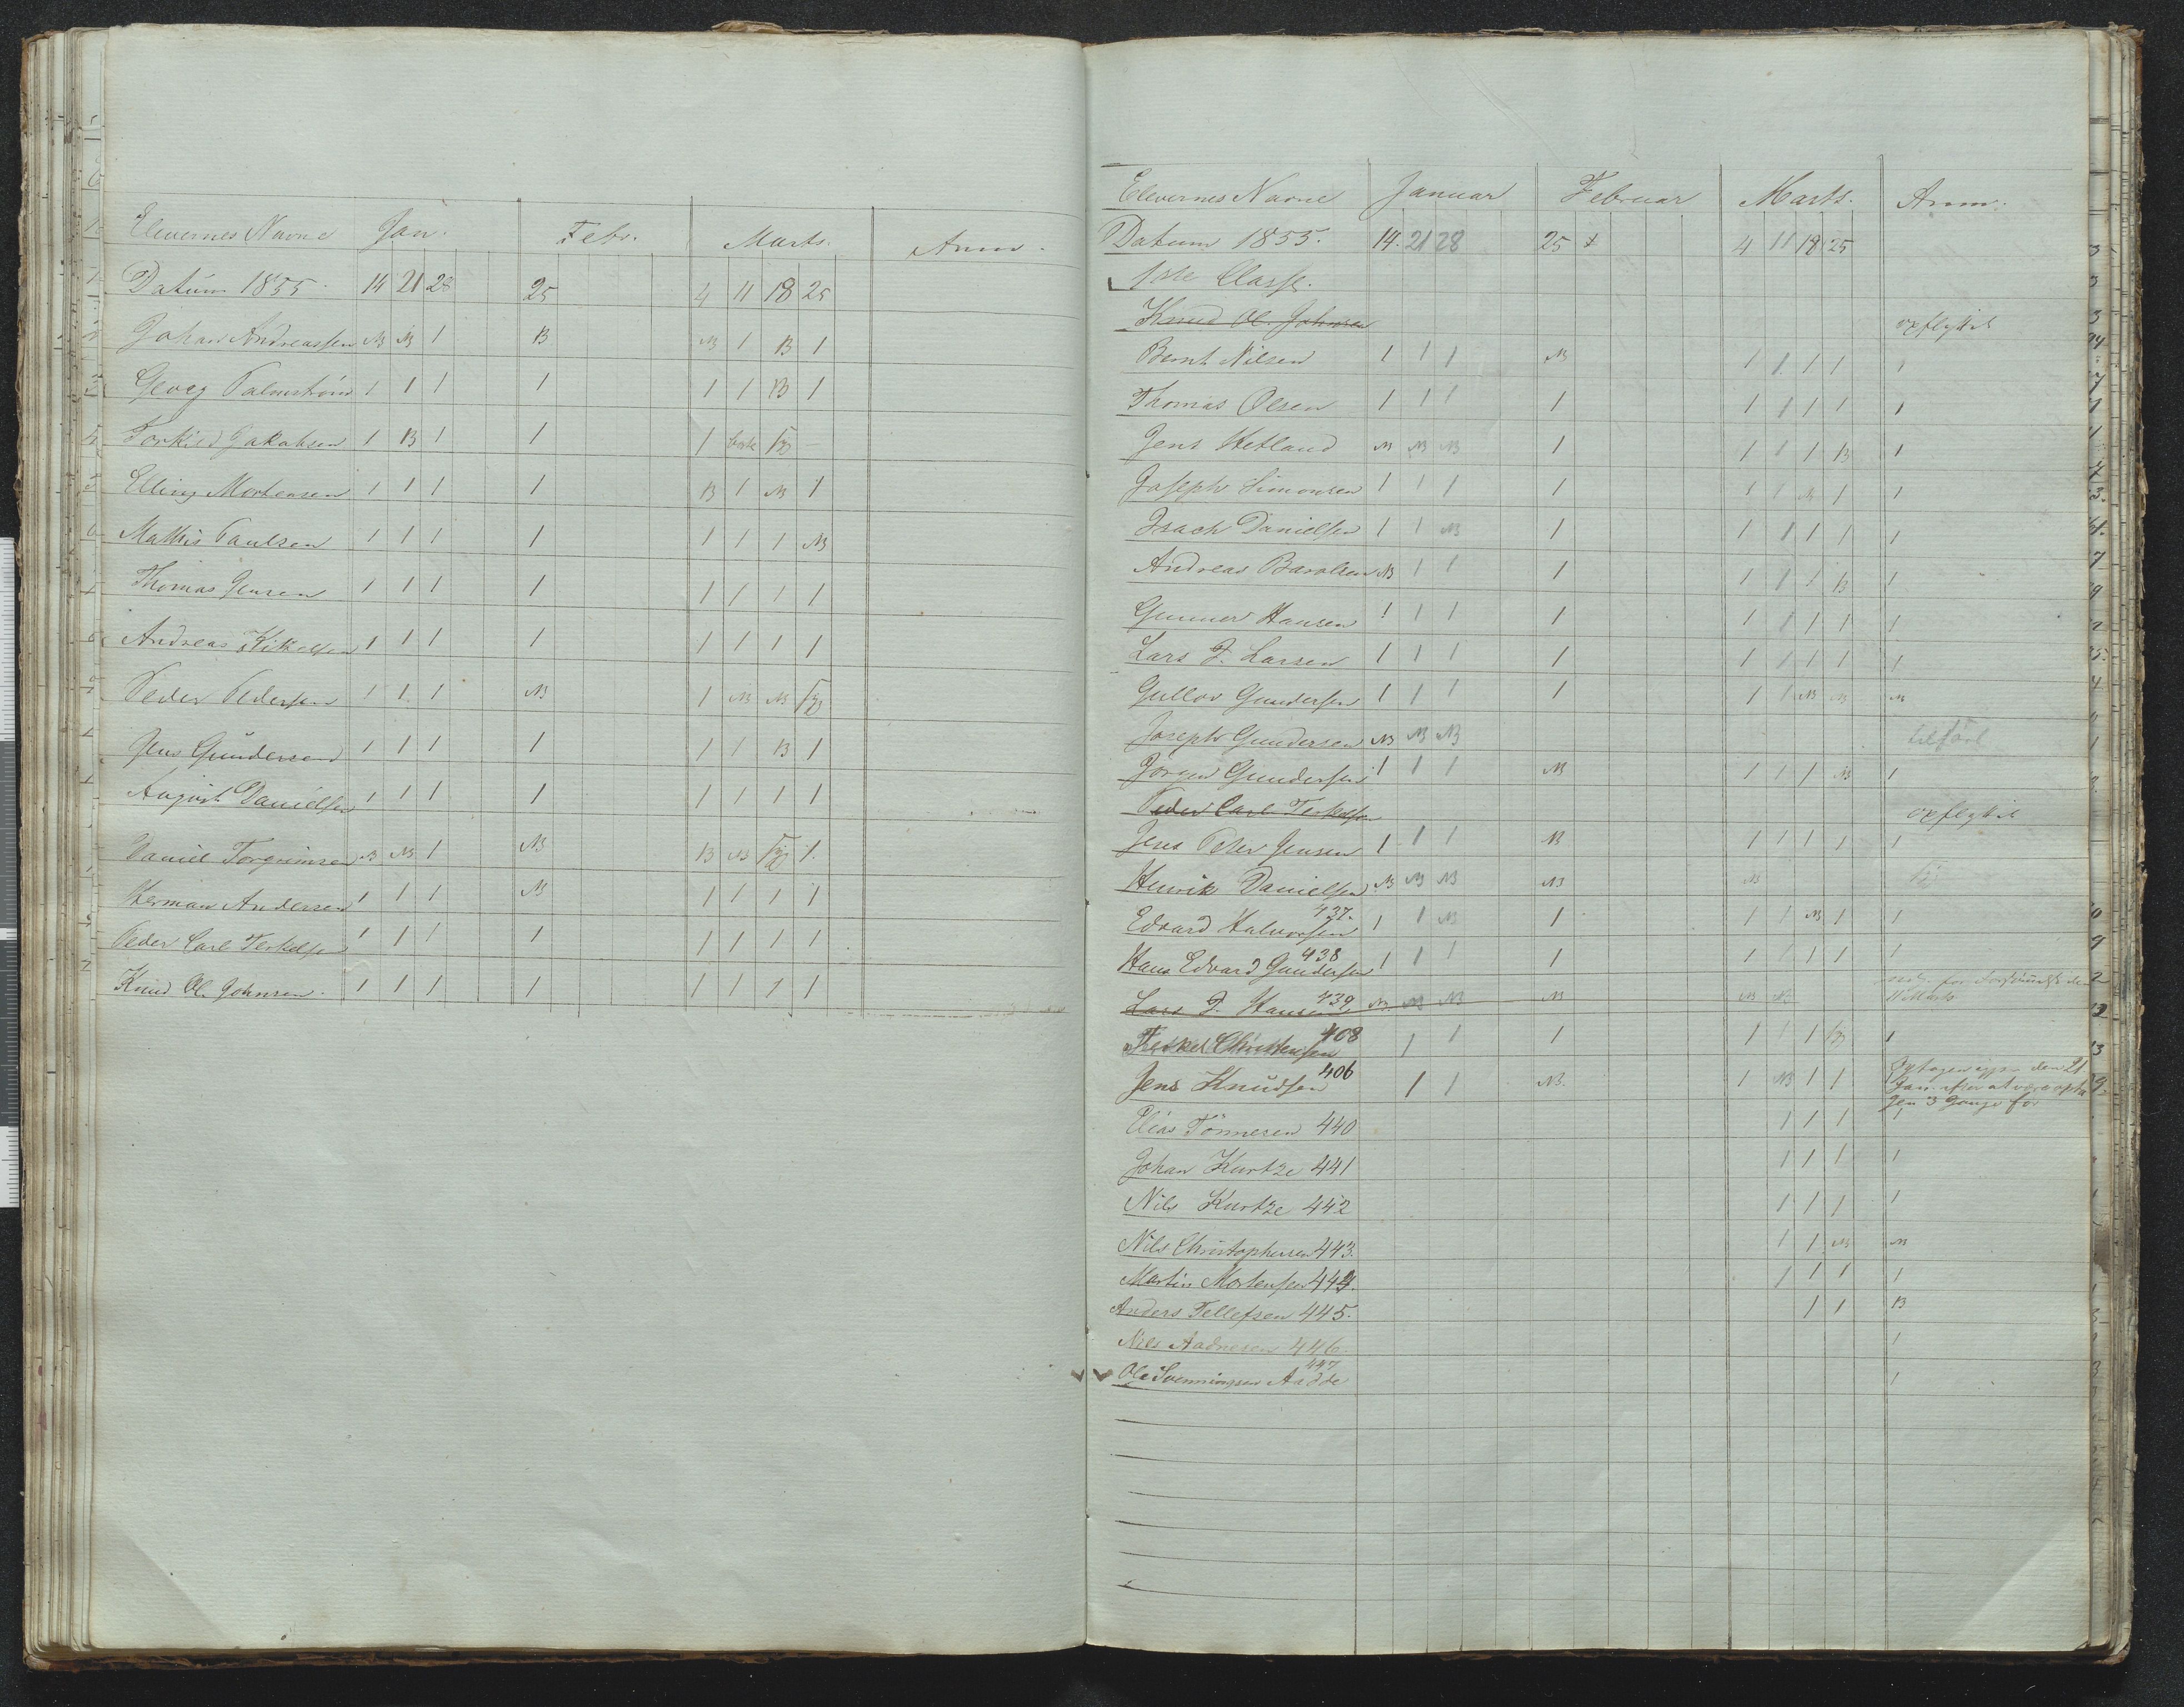 Elevernes Navne Jan. Febr. Marts. Anm.
Datum 1855. 14 21 28 25 4 11 18 25
Johan Andreassen B B 1 B B 1 B 1
Georg Palmstrøm 1 1 1 1 1 1 B 1
Torkild Jakobsen 1 B 1 1 1
Elling Mortensen 1 1 1 1 B 1 B 1
Mathis Paulsen 1 1 1 1 1 1 1 B
Thomas Jensen 1 1 1 1 1 1 1 1
Andreas Kittelsen 1 1 1 1 1 1 1 1
Peder Pedersen 1 1 1 B 1 B B
Jens Gundersen 1 1 1 1 1 1 B 1
August Danielsen 1 1 1 1 1 1 1 1
Daniel Torgrimsen B B 1 B B B 1
Herman Andersen 1 1 1 B 1 1 1 1
Peder Carl Terkelsen 1 1 1 1 1 1 1 1
Knud Ol. Johnsen 1 1 1 1 1 1 1 1
Elevernes Navne Januar Februar Marts. Anm.
Datum 1855. 14. 21 28 25 4 11 18 25
1ste Classe.
Knud Ol. Johnsen opflyttet
Bernt Nilsen 1 1 1 B 1 1 1 1 1
Thomas Olsen 1 1 1 1 1 1 1 1 1
Jens Hetland B B B 1 1 1 1 B 1
Joseph Simonsen 1 1 1 1 1 1 B 1 1
Isach Danielsen 1 1 B 1 1 1 1 1 1
Andreas Barolsen B 1 1 1 1 1 1 B 1
Gunner Hansen 1 1 1 1 1 1 1 1 1
Lars J. Larsen 1 1 1 1 1 1 1 1 1
Gullov Gundersen 1 1 1 1 1 1 B B B
Joseph Gundersen B B B
Jørgen Gundersen 1 1 1 B 1 1 1 B 1
Peder Carl Terkelsen opflyttet
Jens Peter Jensen 1 1 1 B 1 1 1 1 1
Henrik Danielsen B B B B B
Edvard Halvorsen 437. 1 1 B 1 1 1 B 1 1
Hans Edvard Gundersen 438 1 1 1 1 1 1 1 1 1
Lars J. Hansen 439 B B B B B B for Forsømmelse den 11 Marts
Terkel Christensen 408 1 1 1 1 1 1
Jens Knudsen 406 1 1 B. 1 B 1 1 den 21 Jan. efter at være opta
gen 3 Gange før
Elias Tønnesen 440 1 1 1 1
Johan Kurtze 441 1 1 1 1
Nils Kurtze 442 1 1 1 1
Nils Christophersen 443. 1 1 B B
Martin Mortensen 444. 1 1 1 1
Anders Tellefsen 445. 1 1 B
Nils Aadnesen 446. 1
Ole Svenningsen Aadde 447 1